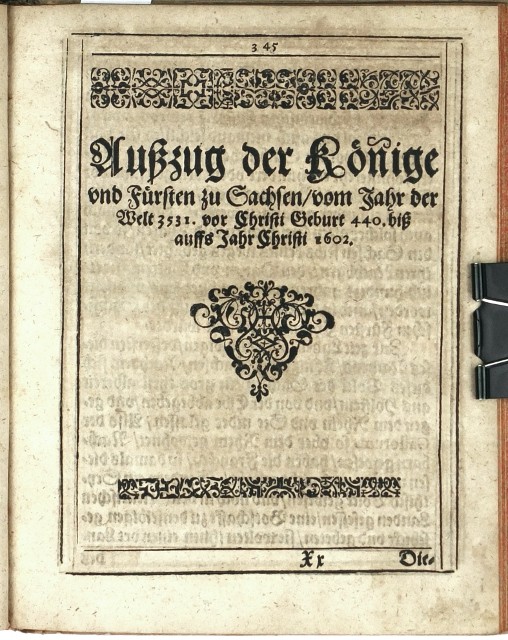 345
Außzug der Könige
vnd Fürsten zu Sachsen/vom Jahr der
Welt 3531. vor Christi Geburt 440. biß
auffs Jahr Christi 1602.
Xx Die-